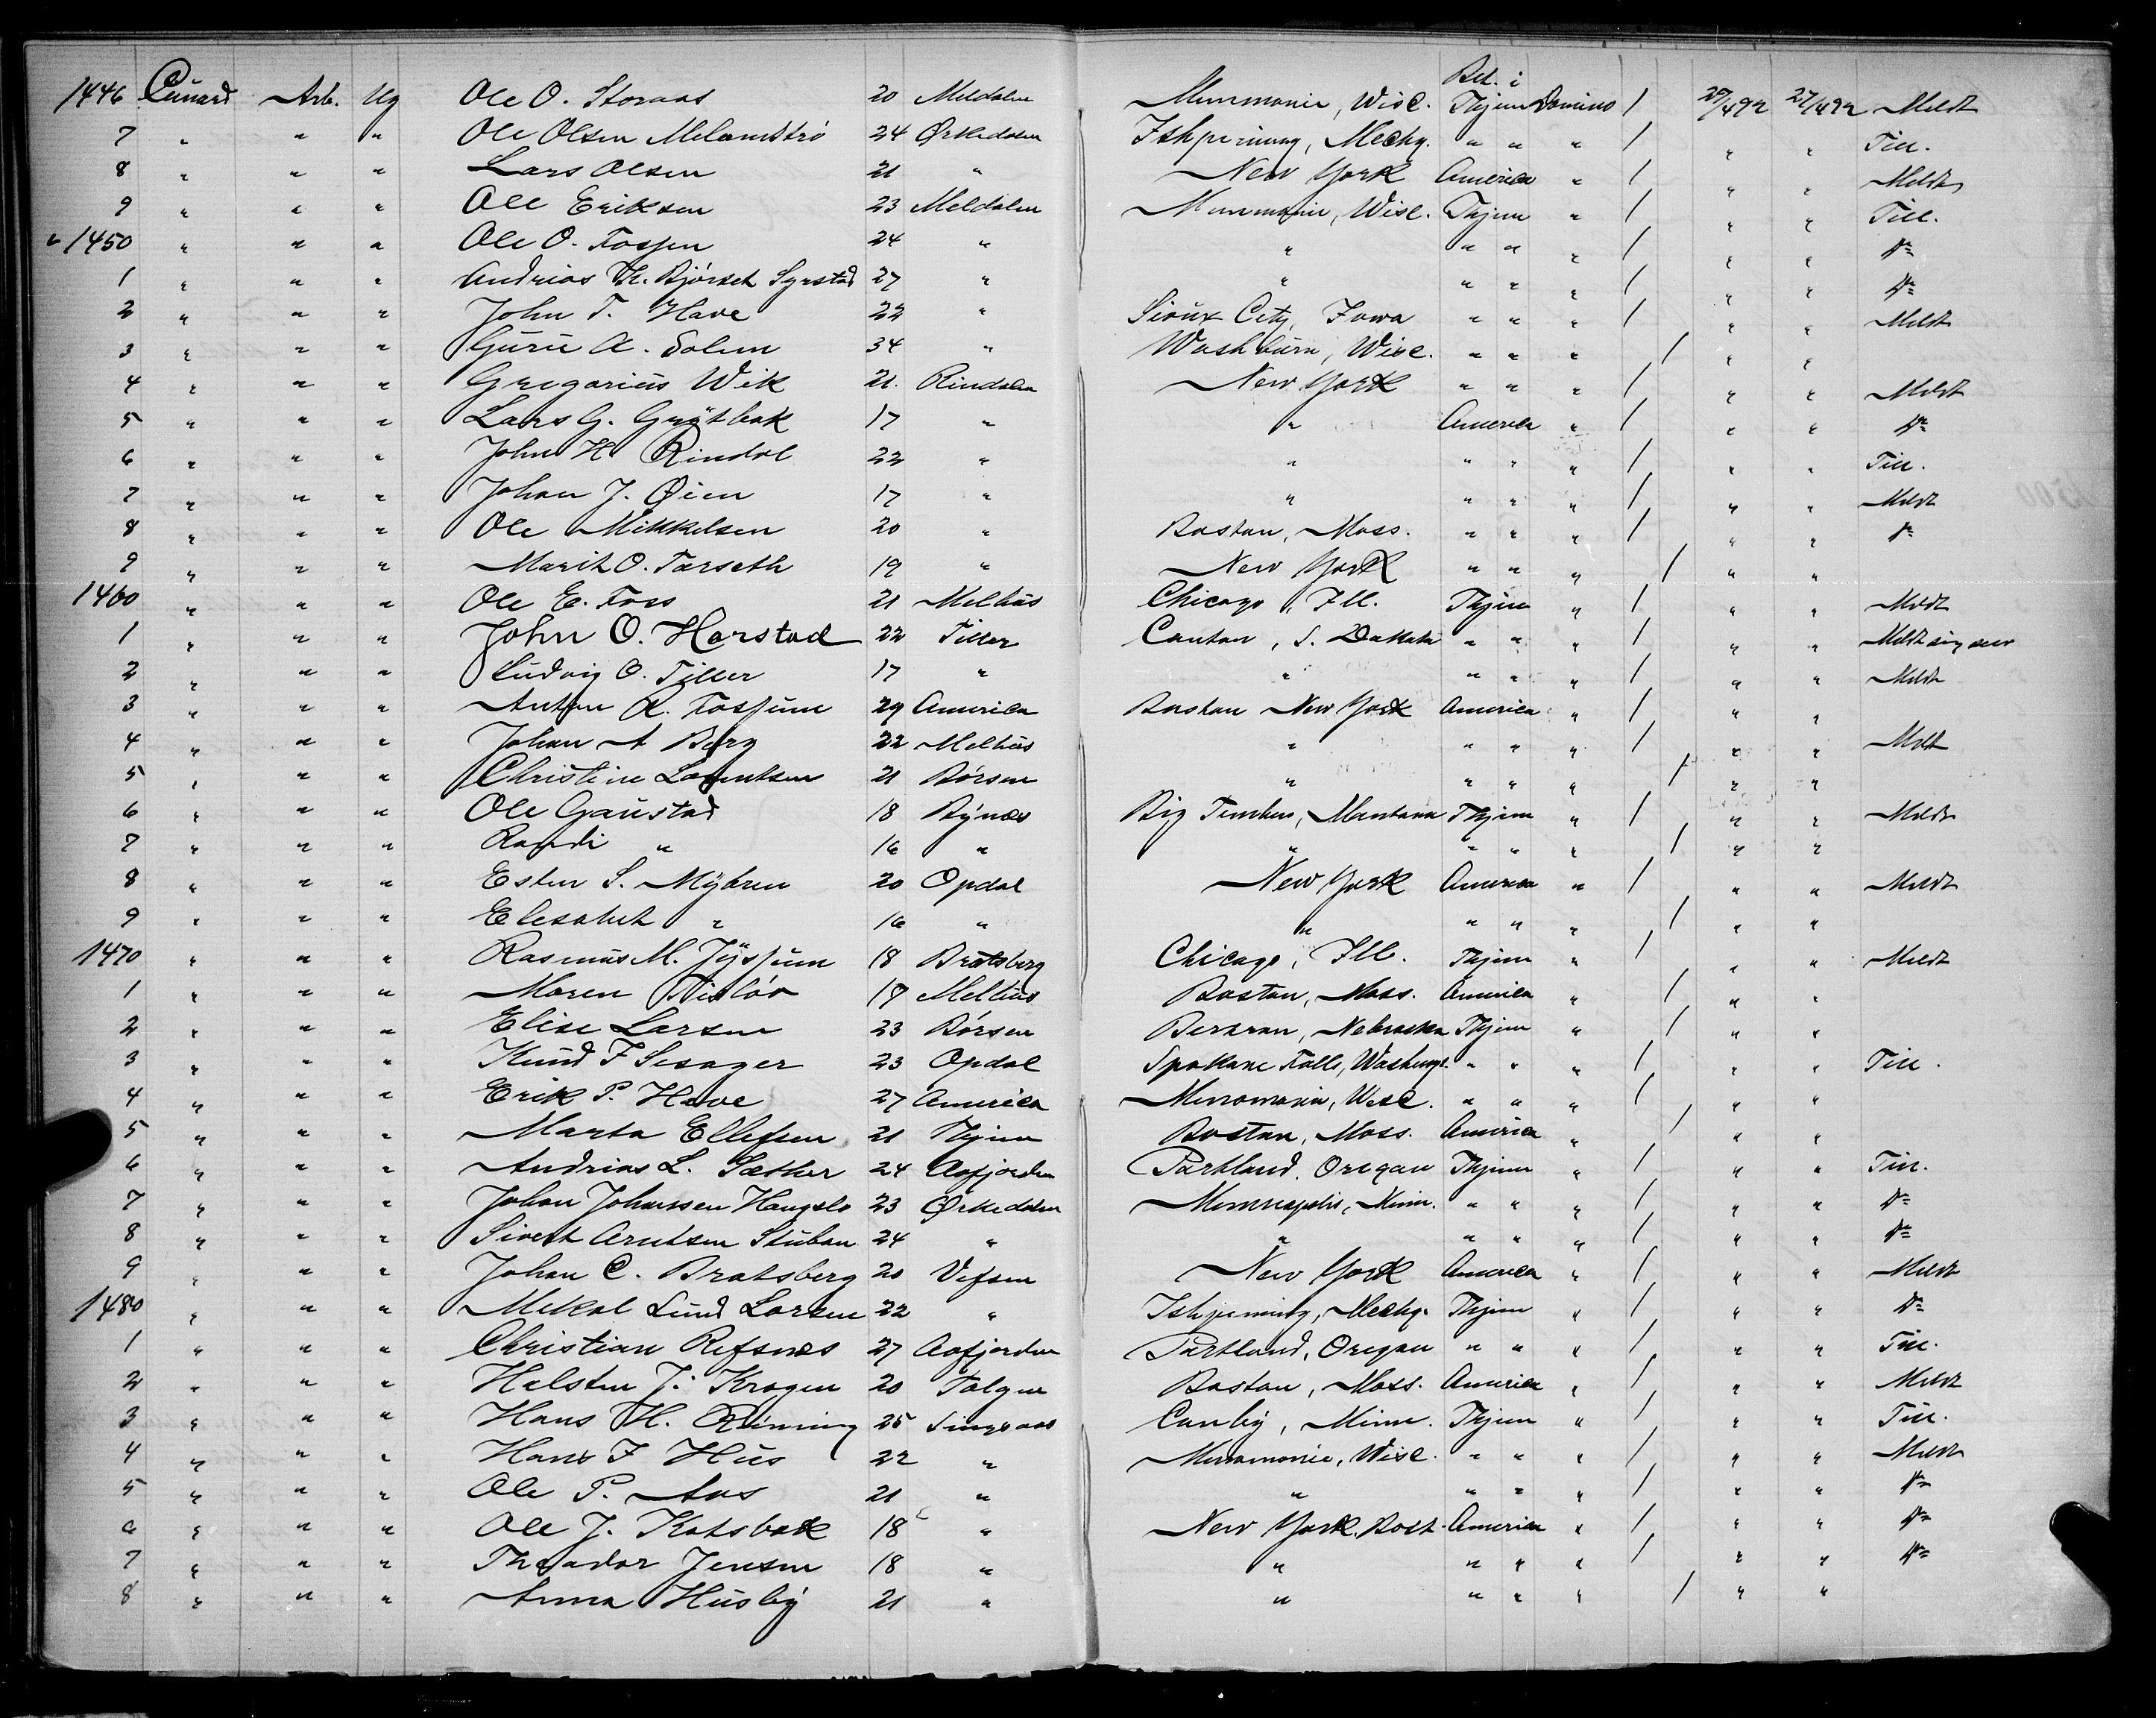 Bet. i
1446 Cunard Arb. Ug Ole O. Storaas 20 Meldalen Menmonie, Wisc. Thjem Domino / 29/4 92 27/4 92 Meldt
7 " " " Ole Olsen Melandstrø 24 Ørkedalen Ishpeming, Mechg. " " " / " " Till.
8 " " " Lars Olsen 21 " New York America " / " " Meldt
9 " " " Ole Eriksen 23 Meldalen Menmonie, Wisc. Thjem " / " " Till.
1450 " " " Ole O. Fossen 24 " " " " " / " " Do
1 " " " Andrias Th. Bjørset Syrstad 27 " " " " " / " " Do
2 " " " John T. Have 22 " Sioux City, Iowa " " " / " " Meldt
3 " " " Guru A. Solem 34 " Washburn, Wisc. " " " / " "
4 " " " Gregorius Wik 21. Rindalen New York " " " / " " Meldt
5 " " " Lars G. Grytbak 17 " " America " / " " Do
6 " " " John H. Rindal 22 " " " " " / " " Till.
7 " " " Johan J. Øien 17 " " " " " / " " Meldt
8 " " " Ole Mikkelsen 20 " Boston, Mass. " " " / " " Do
9 " " " Marit O. Tørseth 19 " New York " " " / " "
1460 " " " Ole E. Foss 21 Melhus Chicago, Ill. Thjem " / " " Meldt
1 " " " John O. Harstad 22 Tiller Canton, S. Dakota " " " / " " Meldt sig selv
2 " " " Ludvig O. Tiller 17 " " " " " / " " Meldt
3 " " " Anton A. Fossum 29 America Boston New York America " / " "
4 " " " Johan A Berg 22 Melhus " " " " / " " Meldt
5 " " " Christine Lorentsen 21 Børsen " " " " / " "
6 " " " Ole Gaustad 18 Bynæs Big Timber, Montana Thjem " / " " Meldt
7 " " " Randi " 16 " " " " " / " "
8 " " " Esten S. Myhren 20 Opdal New York America " / " " Meldt
9 " " " Elesabet " 16 " " " " " / " "
1470 " " " Rasmus M. Jyssum 18 Bratsberg Chicago, Ill. Thjem " / " " Meldt
1 " " " Maren 19 Melhus Boston, Mass. America " / " "
2 " " " Elise Larsen 23 Børsen Nebraska Thjem " / " "
3 " " " Knud F Sesager 23 Opdal Spokane Falls, Washingt. " " " / " " Till.
4 " " " Erik P. Hove 27 America Menomonie, Wisc. " " " / " "
5 " " " Marta Ellefsen 21 Thjem Boston, Mass. America " / " "
6 " " " Andrias L. Sæther 24 Aafjorden Portland, Oregon Thjem " / " " Till.
7 " " " Johan Johanssen Haugslo 23 Ørkedalen Minneapolis, Minn. " " " / " " Do
8 " " " Sivert Arntsen Stuban 24 " " " " " / " " Do
9 " " " Johan C. Bratsberg 20 Vefsen New York America " / " " Meldt
1480 " " " Mikal Lund Larsen 22 " Ishpeming, Mechg. Thjem " / " " Do
1 " " " Christian Refsnes 27 Aafjorden Portland, Oregon " " " / " " Till.
2 " " " Halsten J. Krogen 20 Tolgen Boston, Mass. America " / " " Meldt
3 " " " Hans H. Rønning 25 Singsaas Canby, Minn. Thjem " / " " Till.
4 " " " Hans F Hus 22 " Menomonie, Wisc. " " " / " " Meldt
5 " " " Ole P. Aas 21 " " " " " / " " Do
6 " " " Ole J. Kotsbak 18 " New York. Bost. America " / " " Do
7 " " " Theodor Jensen 18 " " " " " / " " Do
8 " " " Anna Husby 21 " " " " " / " "